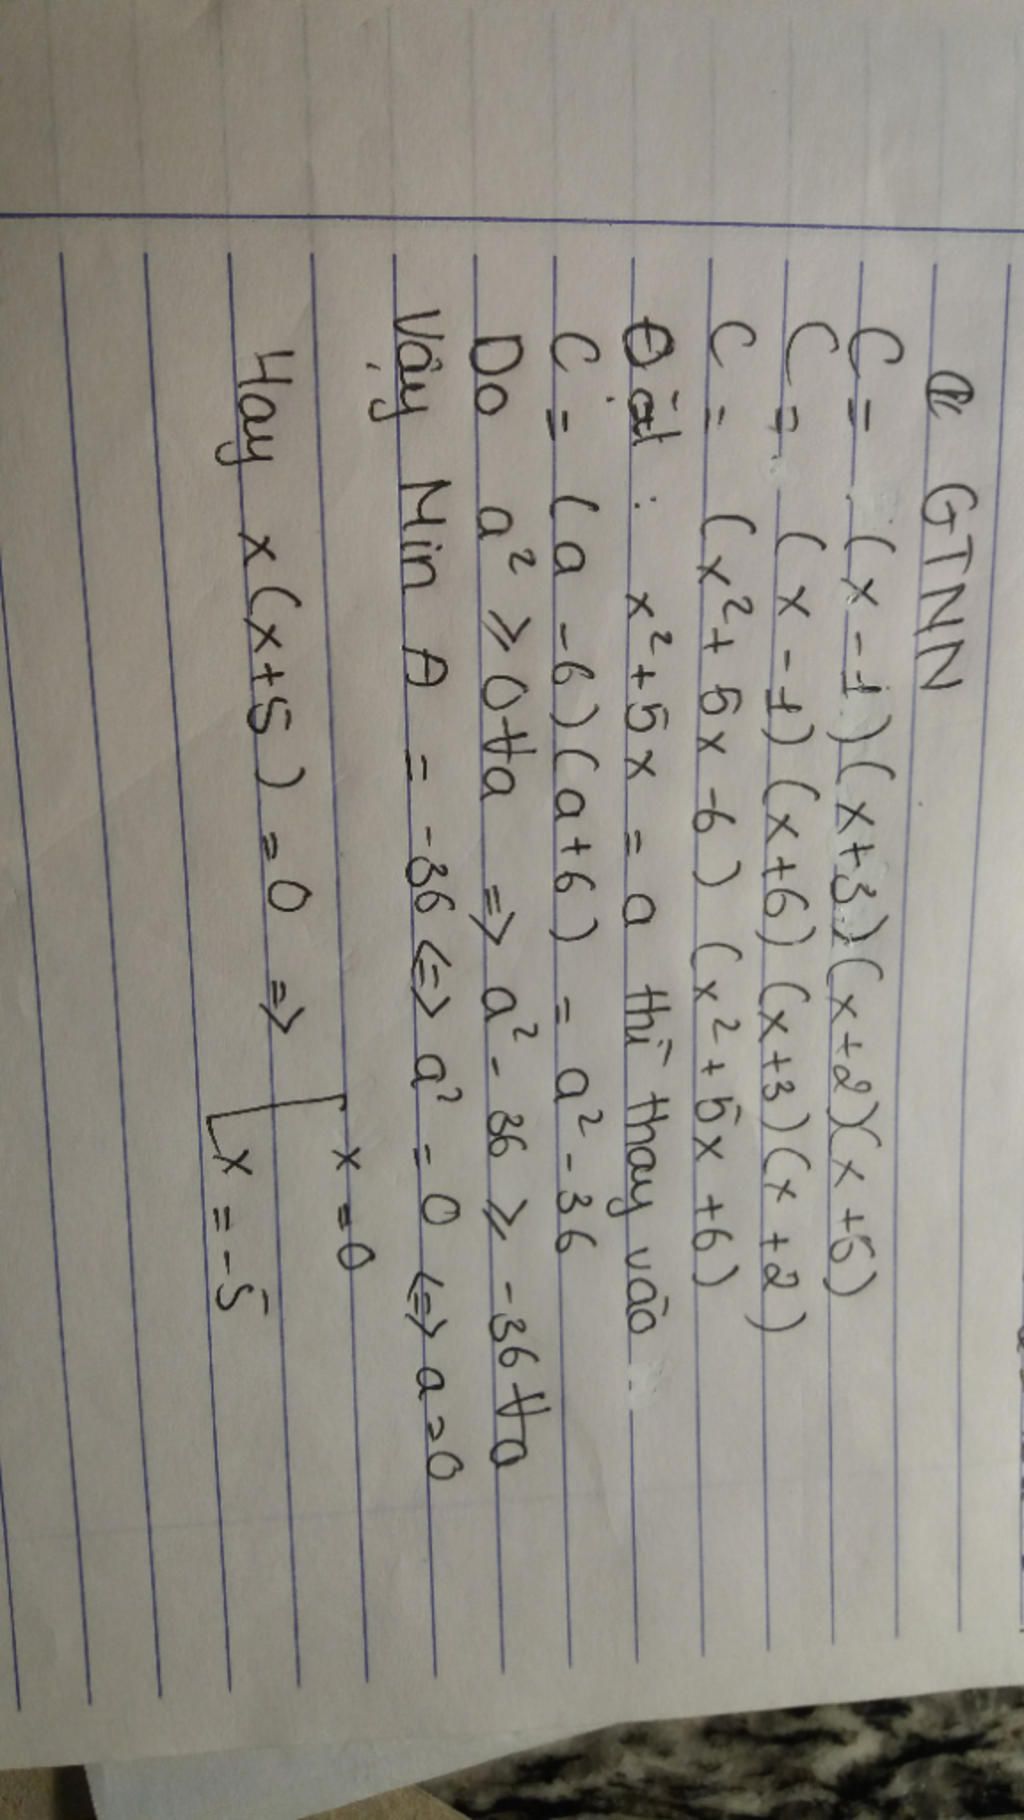 GTNN
C = (x - 1)(x+3)(x+2)(x+6)
C = (x - 1)(x+6)(x+3)(x+2)
C = (x² + 5x - 6)(x² + 5x + 6)
Đặt : x² + 5x = a thì thay vào
C = (a - 6)(a + 6) = a² - 36
Do a² ≥ 0 ∀a => a² - 36 ≥ -36 ∀a
Vậy Min A = -36 <=> a² = 0 <=> a = 0
Hay x(x+5) = 0 => [ x = 0
x = -5